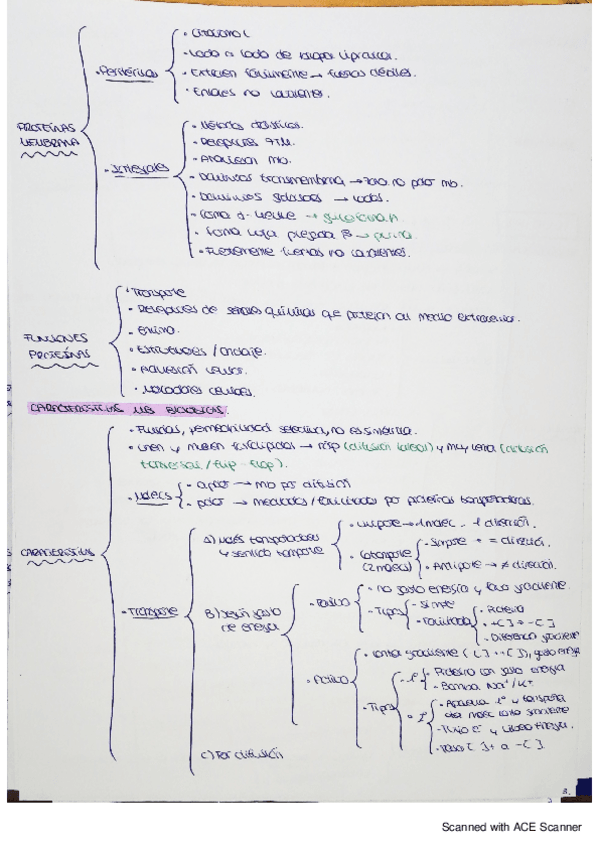 PROTEÍNAS MEMBRANA
- Periféricas
- Citosol
- Lado a lado de
- Extraen fácilmente → fuerzas débiles.
- Enlaces no covalentes.
- Integrales
- Métodos drásticos.
- Atraviesan mb.
- Dominios transmembrana → zona no polar mb.
- Dominios globosos → lados.
- Forma α-hélice → glucoforina A
- Forma hoja plegada β → porina
- Fuertemente fuerzas no covalentes.
FUNCIONES PROTEÍNAS
- Transporte
- Receptores de señales químicas que proteían al medio extracelular.
- Enzima.
- Estructurales / anclaje.
- Adhesión celular.
- Marcadores celulares.
CARACTERÍSTICAS MB BIOLÓGICAS.
CARACTERÍSTICAS
- Fluidas, permeabilidad selectiva, no es simétrica.
- Unen y mueven fosfolípidos → ráp (difusión lateral) y muy lenta (difusión
transversal / flip-flop).
- Molecs
- apolar → mb por difusión
- polar → mediados / facilitados por proteínas transportadoras.
- Transporte
A) Nº molécs transportadas y sentido transporte
- Uniporte → 1 molec. 1 dirección.
- Cotransporte (2 molecs)
- Simporte → = dirección.
- Antiporte → ≠ dirección.
B) Según gasto de energía
- Pasivo
- no gasto energía y favor gradiente.
- Tipos
- Simple
- Facilitada
- Proteína
- +[ ] → -[ ]
- Diferencia gradiente
- Activo
- Contra gradiente ([ ]- → +[ ]), gasto energía
- Tipos
- 1º
- Proteína con gasto energía
- Bomba Na⁺/K⁺
- 2º
- Aprovecha 1º y transporta otra molec contra gradiente
- Flujo e⁻ y libera energía.
- Pasa [ ]+ a -[ ].
C) Por difusión
Scanned with ACE Scanner